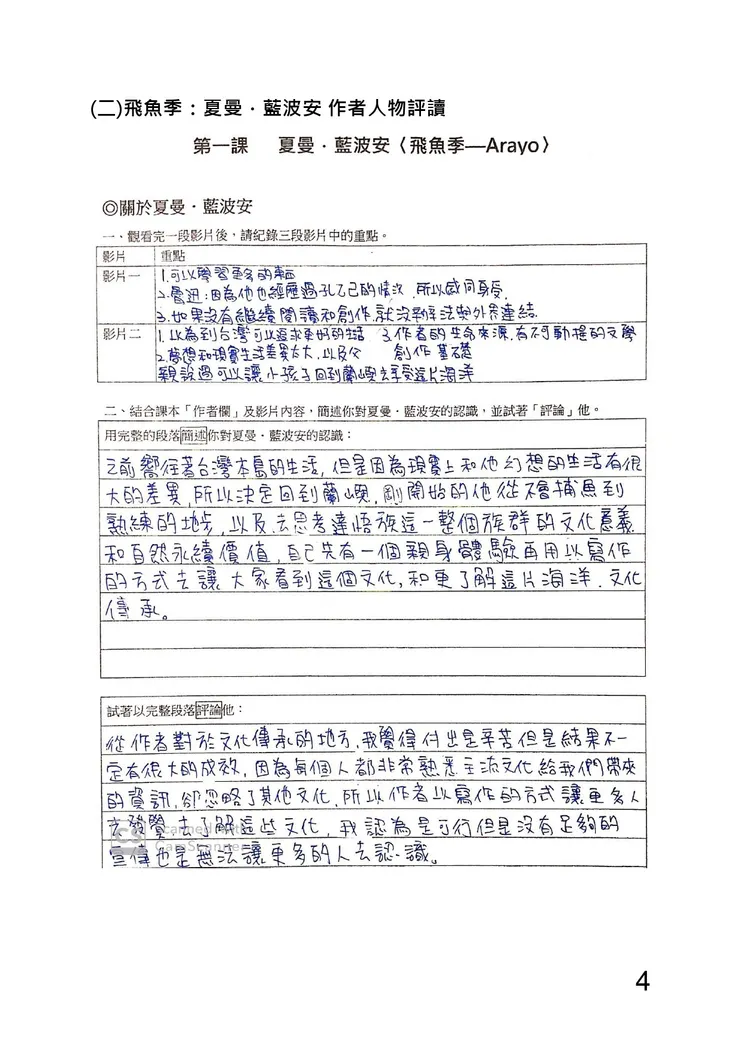 (二)飛魚季：夏曼．藍波安 作者人物評讀
第一課 夏曼．藍波安〈飛魚季—Arayo〉
◎關於夏曼．藍波安
一、觀看完一段影片後，請紀錄三段影片中的重點。
影片 重點
影片一 1.可以學習更多的東西
2.魯迅：因為他也經歷過孔乙己的情況，所以感同身受.
3.如果沒有繼續閱讀和創作.就沒辦法與外界連結.
影片二 1.以為到台灣可以追求更好的生活 3.作者的生命來源.有不可動搖的文學
2.夢想和現實生活差異太大.以及父 創作基礎
親說過可以讓小孩子回到蘭嶼去享受這片海洋
二、結合課本「作者欄」及影片內容，簡述你對夏曼．藍波安的認識，並試著「評論」他。
用完整的段落簡述你對夏曼．藍波安的認識：
之前嚮往著台灣本島的生活, 但是因為現實上和他幻想的生活有很
大的差異.所以決定回到蘭嶼, 剛開始的他從不會捕魚到
熟練的地步, 以及去思考達悟族這一整個族群的文化意義
和自然永續價值, 自己先有一個親身體驗再用以寫作
的方式去讓大家看到這個文化, 和更了解這片海洋.文化
傳承。
試著以完整段落評論他：
從作者對於文化傳承的地方, 我覺得付出是辛苦但是結果不一
定有很大的成效, 因為每個人都非常熟悉主流文化給我們帶來
的資訊, 卻忽略了其他文化, 所以作者以寫作的方式讓更多人
去發覺去了解這些文化, 我認為是可行但是沒有足夠的
宣傳也是無法讓更多的人去認識。
CS Scanned with
CamScanner
4